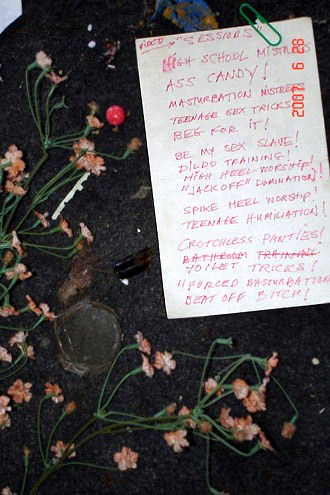 VIDEO "SESSIONS"
HIGH SCHOOL MISTRESS
ASS CANDY!
MASTURBATION MISTRESS
TEENAGE SEX TRICKS
BEG FOR IT!
BE MY SEX SLAVE!
DILDO TRAINING!
HIGH HEEL WORSHIP!
"JACK OFF" DOMINATION!
SPIKE HEEL WORSHIP!
TEENAGE HUMILIATION!
CROTCHLESS PANTIES!
BATHROOM TRAINING
TOILET TRICKS!
"FORCED MASTURBATION
BEAT OFF BITCH!
2007 6 28